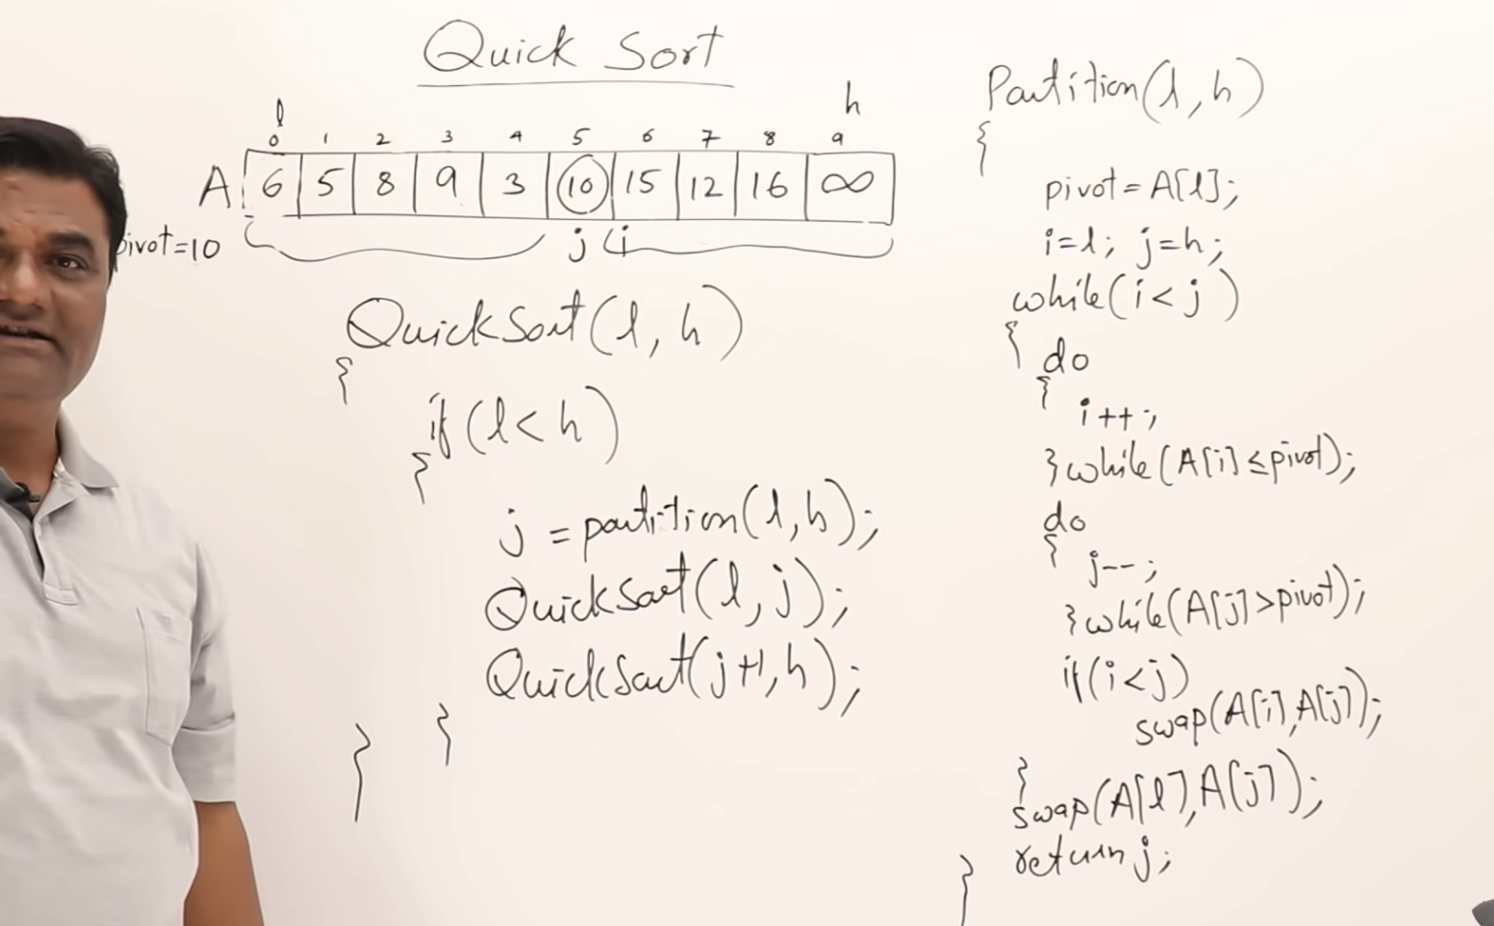 Quick Sort
l h
0 1 2 3 4 5 6 7 8 9
A 6 5 8 9 3 10 15 12 16 ∞
pivot=10
j i
QuickSort(l, h)
{
if(l<h)
{
j = partition(l,h);
QuickSort(l,j);
QuickSort(j+1,h);
}
}
Partition(l,h)
{
pivot=A[l];
i=l; j=h;
while(i<j)
{ do
{
i++;
}while(A[i]≤pivot);
do
{
j--;
}while(A[j]>pivot);
if(i<j)
swap(A[i],A[j]);
}
swap(A[l],A[j]);
return j;
}